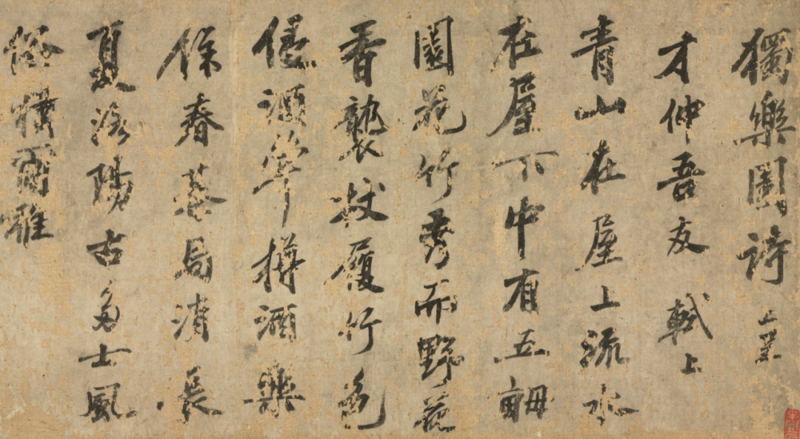 獨樂園詩上呈
才仲吾友軾上
青山在屋上流水
在屋下中有五畝
園花竹秀而野花
香襲杖履竹色
侵酒斝樽酒樂
餘春棊局消長
夏洛陽古多士風
俗猶爾雅